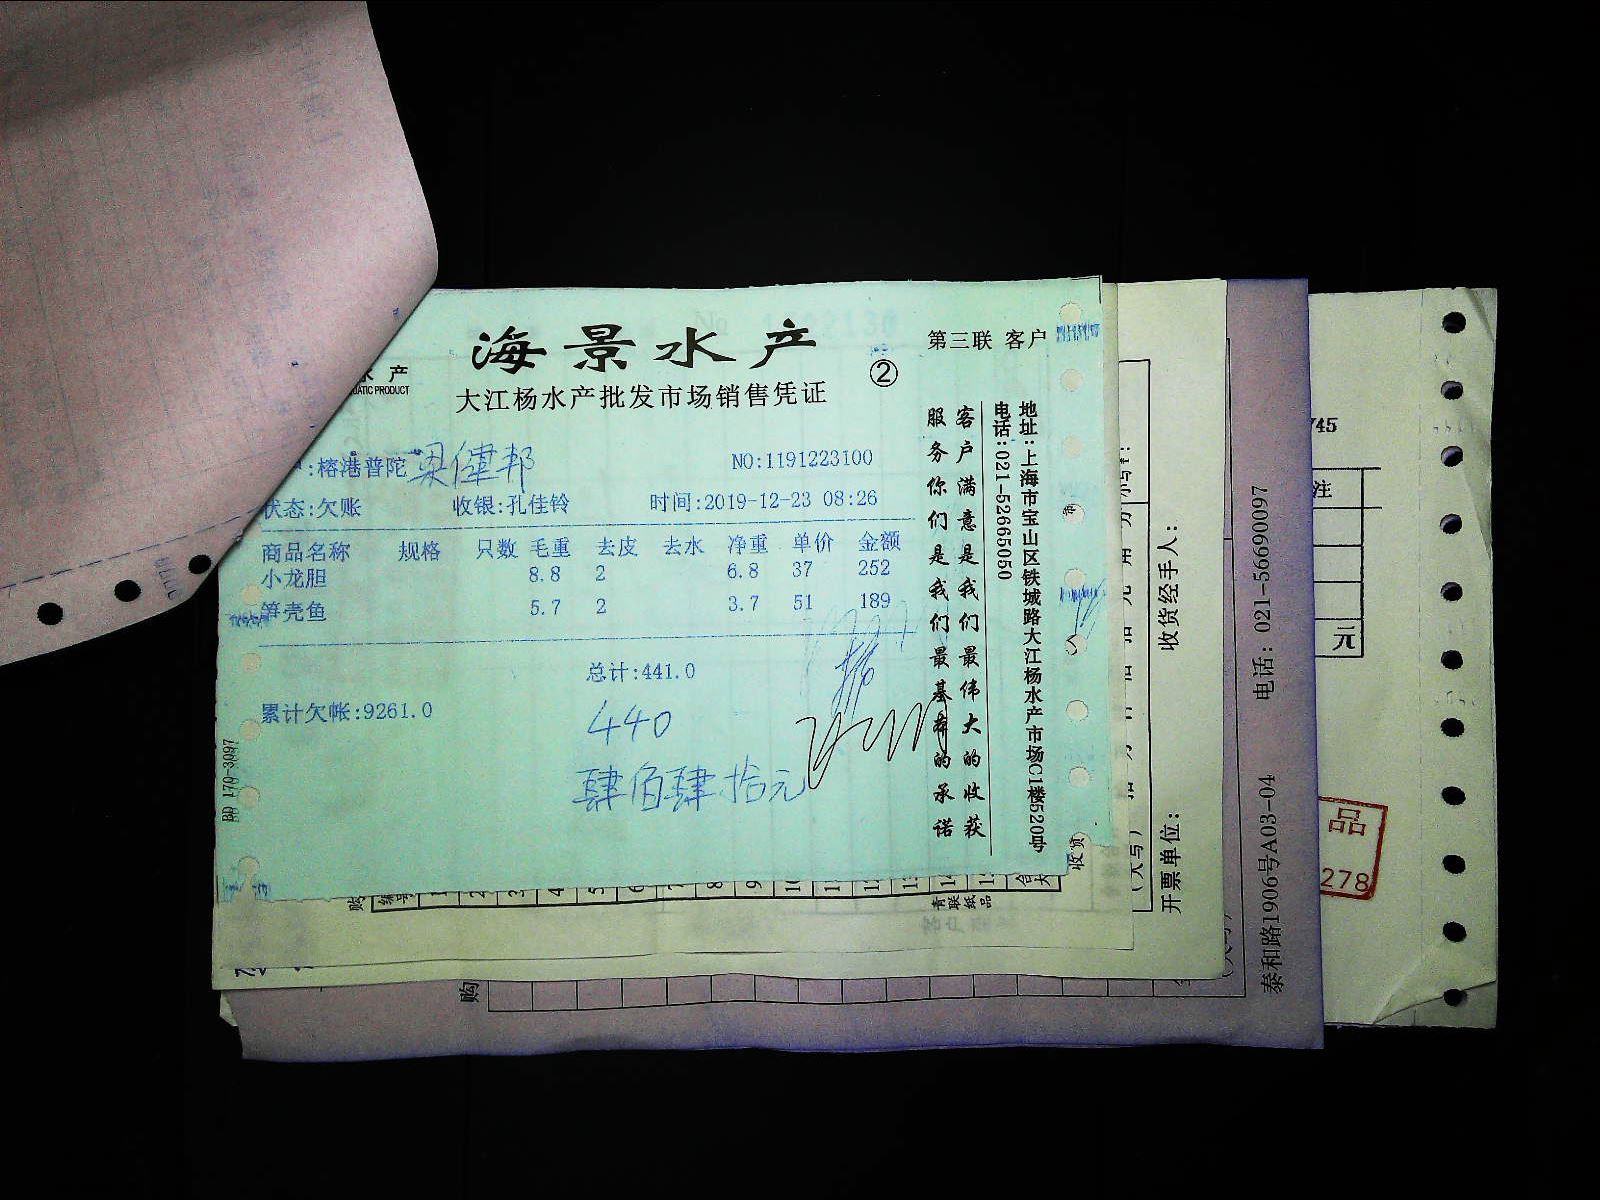 海景水产
第三联 客户
水产
UATIC PRODUCT
②
大江杨水产批发市场销售凭证
:榕港普陀 梁健邦
NO:1191223100
状态:欠账 收银:孔佳铃 时间:2019-12-23 08:26
商品名称 规格 只数 毛重 去皮 去水 净重 单价 金额
小龙胆 8.8 2 6.8 37 252
笋壳鱼 5.7 2 3.7 51 189
总计:441.0
累计欠帐:9261.0
440
肆佰肆拾元
BD 170-3097
客户满意是我们最伟大的收获
服务你们是我们最基本的承诺
地址:上海市宝山区铁城路大江杨水产市场C1楼520号
电话:021-52665050
收货
购
编号 1 2 3 4 5 6 7 8 9 10 11 12 13 14 15
青联纸品
(大写)
收货经手人:
开票单位:
购
泰和路1906号A03-04 电话: 021-56690097
745
注
元
品
278